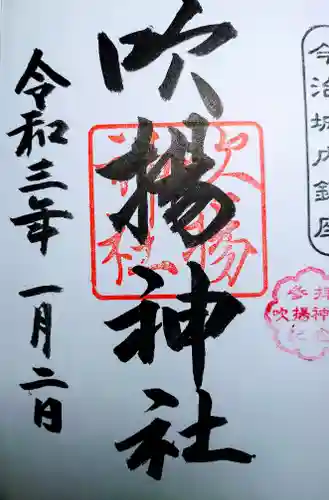 今治城内鎮座
吹揚神社
吹揚神社
参拝
吹揚神社
令和三年一月二日